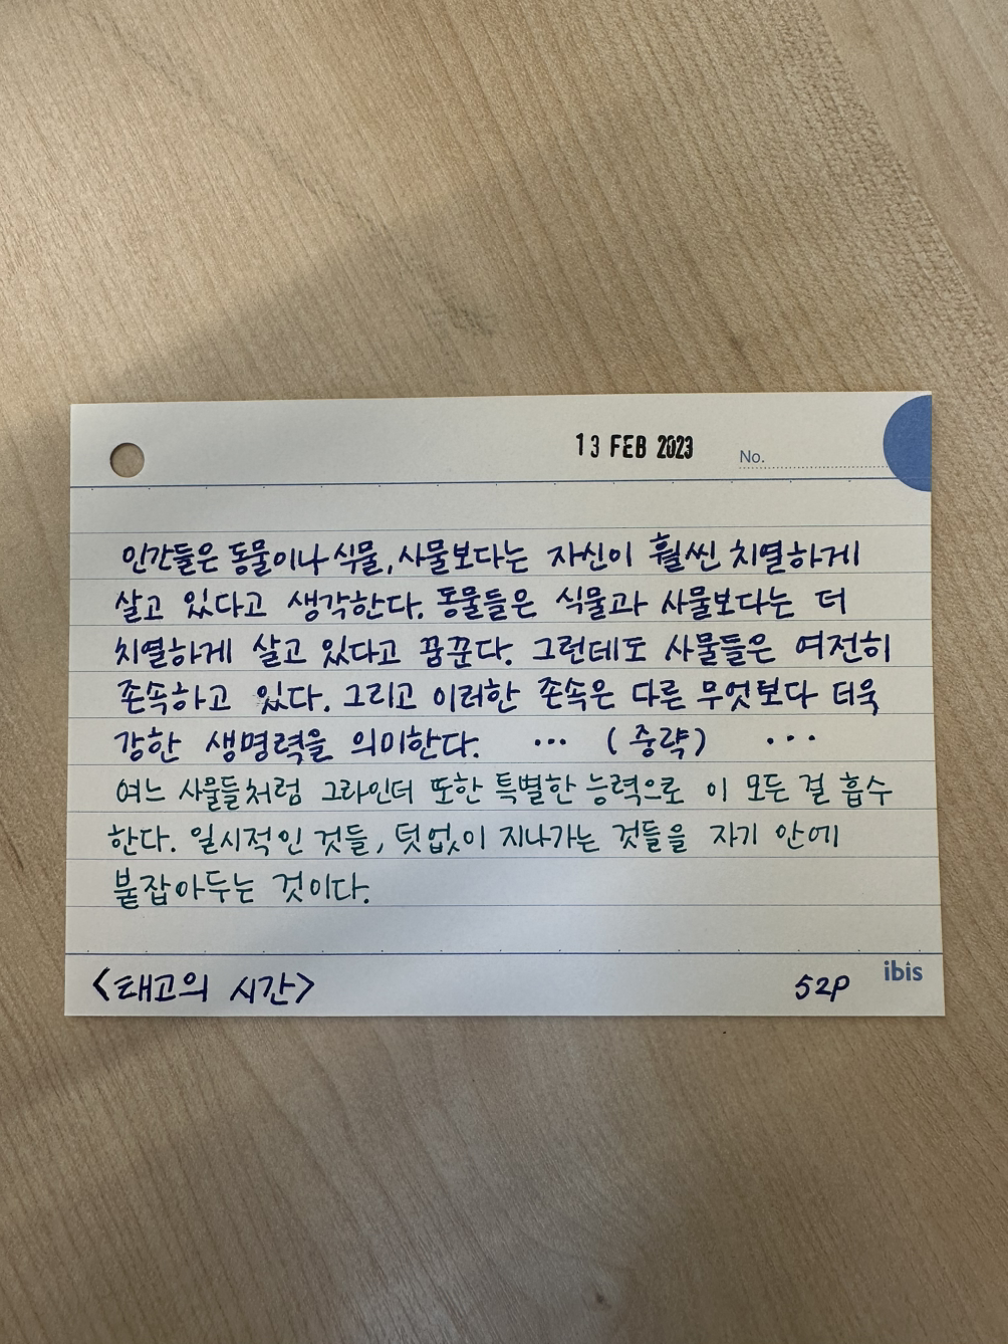 13 FEB 2023 No.
인간들은 동물이나 식물, 사물보다는 자신이 훨씬 치열하게
살고 있다고 생각한다. 동물들은 식물과 사물보다는 더
치열하게 살고 있다고 꿈꾼다. 그런데도 사물들은 여전히
존속하고 있다. 그리고 이러한 존속은 다른 무엇보다 더욱
강한 생명력을 의미한다. ... (중략) ...
여느 사물들처럼 그라인더 또한 특별한 능력으로 이 모든 걸 흡수
한다. 일시적인 것들, 덧없이 지나가는 것들을 자기 안에
붙잡아두는 것이다.
<태고의 시간> 52P
ibis